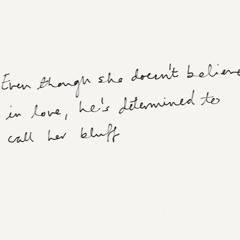 Even though she doesn't believe
in love, he's determined to
call her bluff